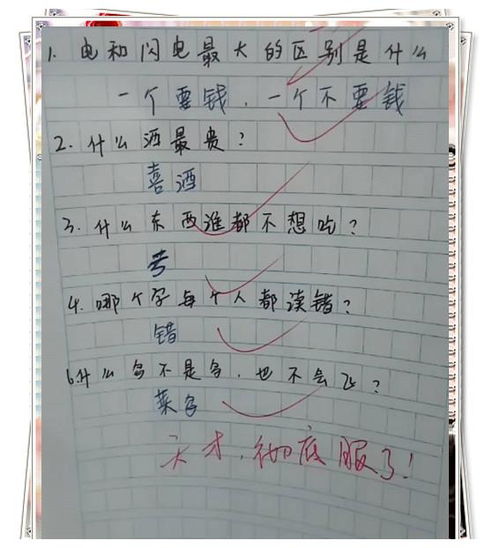 1. 电和闪电最大的区别是什么
一个要钱,一个不要钱
2. 什么酒最贵?
喜酒
3. 什么东西谁都不想吃?
亏
4. 哪个字每个人都读错?
错
6.什么鸟不是鸟,也不会飞?
菜鸟
天才,彻底服了!